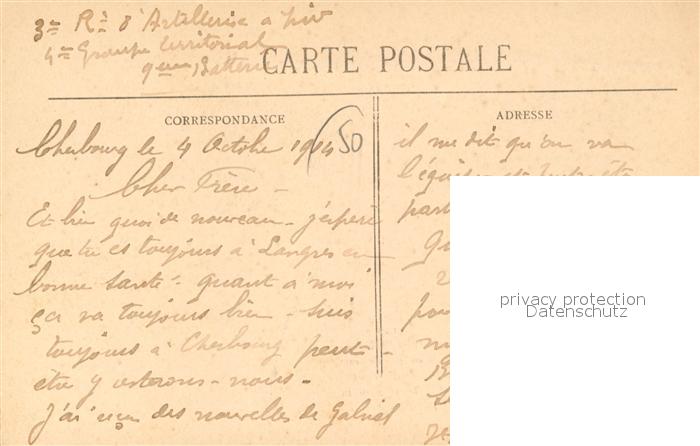 3me Rt d'Artillerie a pied
4me Groupe territorial
9eme Batterie
CARTE POSTALE
CORRESPONDANCE
ADRESSE
50
Cherbourg le 4 Octobre 1914
Cher Frère -
Et bien quoi de nouveau - j'espère
que tu es toujours à Langres en
bonne santé - quant à moi
ça va toujours bien - suis
toujours à Cherbourg peut-
être y resterons-nous.
J'ai reçu des nouvelles de Gabriel
il me dit qu'on va
l'équiper et
part
pou
privacy protection
Datenschutz